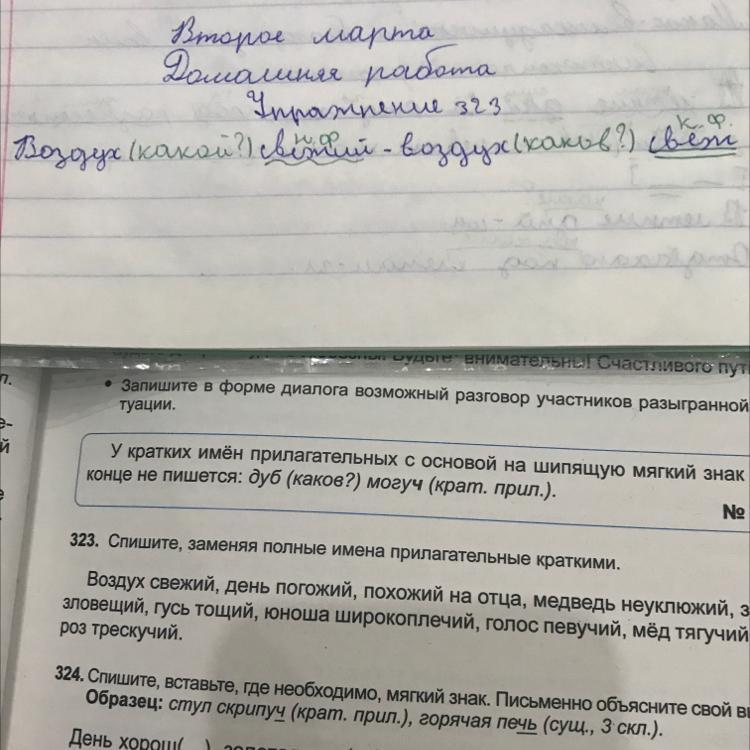 Второе марта
Домашняя работа
Упражнение 323
п. ф. к. ф.
Воздух (какой?) свежий - воздух (каков?) свеж
внимательны! Счастливого пут
• Запишите в форме диалога возможный разговор участников разыгранной
туации.
У кратких имён прилагательных с основой на шипящую мягкий знак
конце не пишется: дуб (каков?) могуч (крат. прил.).
№
323. Спишите, заменяя полные имена прилагательные краткими.
Воздух свежий, день погожий, похожий на отца, медведь неуклюжий, з
зловещий, гусь тощий, юноша широкоплечий, голос певучий, мёд тягучий
роз трескучий.
324. Спишите, вставьте, где необходимо, мягкий знак. Письменно объясните свой вы
Образец: стул скрипуч (крат. прил.), горячая печь (сущ., 3 скл.).
День хорош(